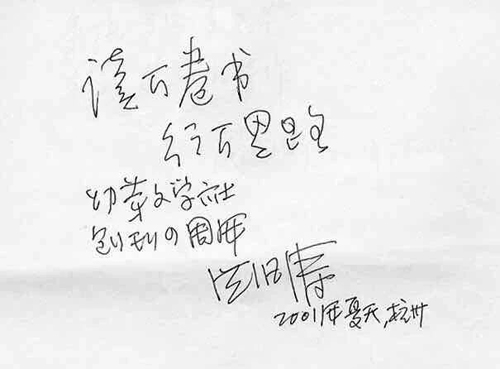 读万卷书
行万里路
幼芽文学社
创刊10周年
2001年夏天,杭州